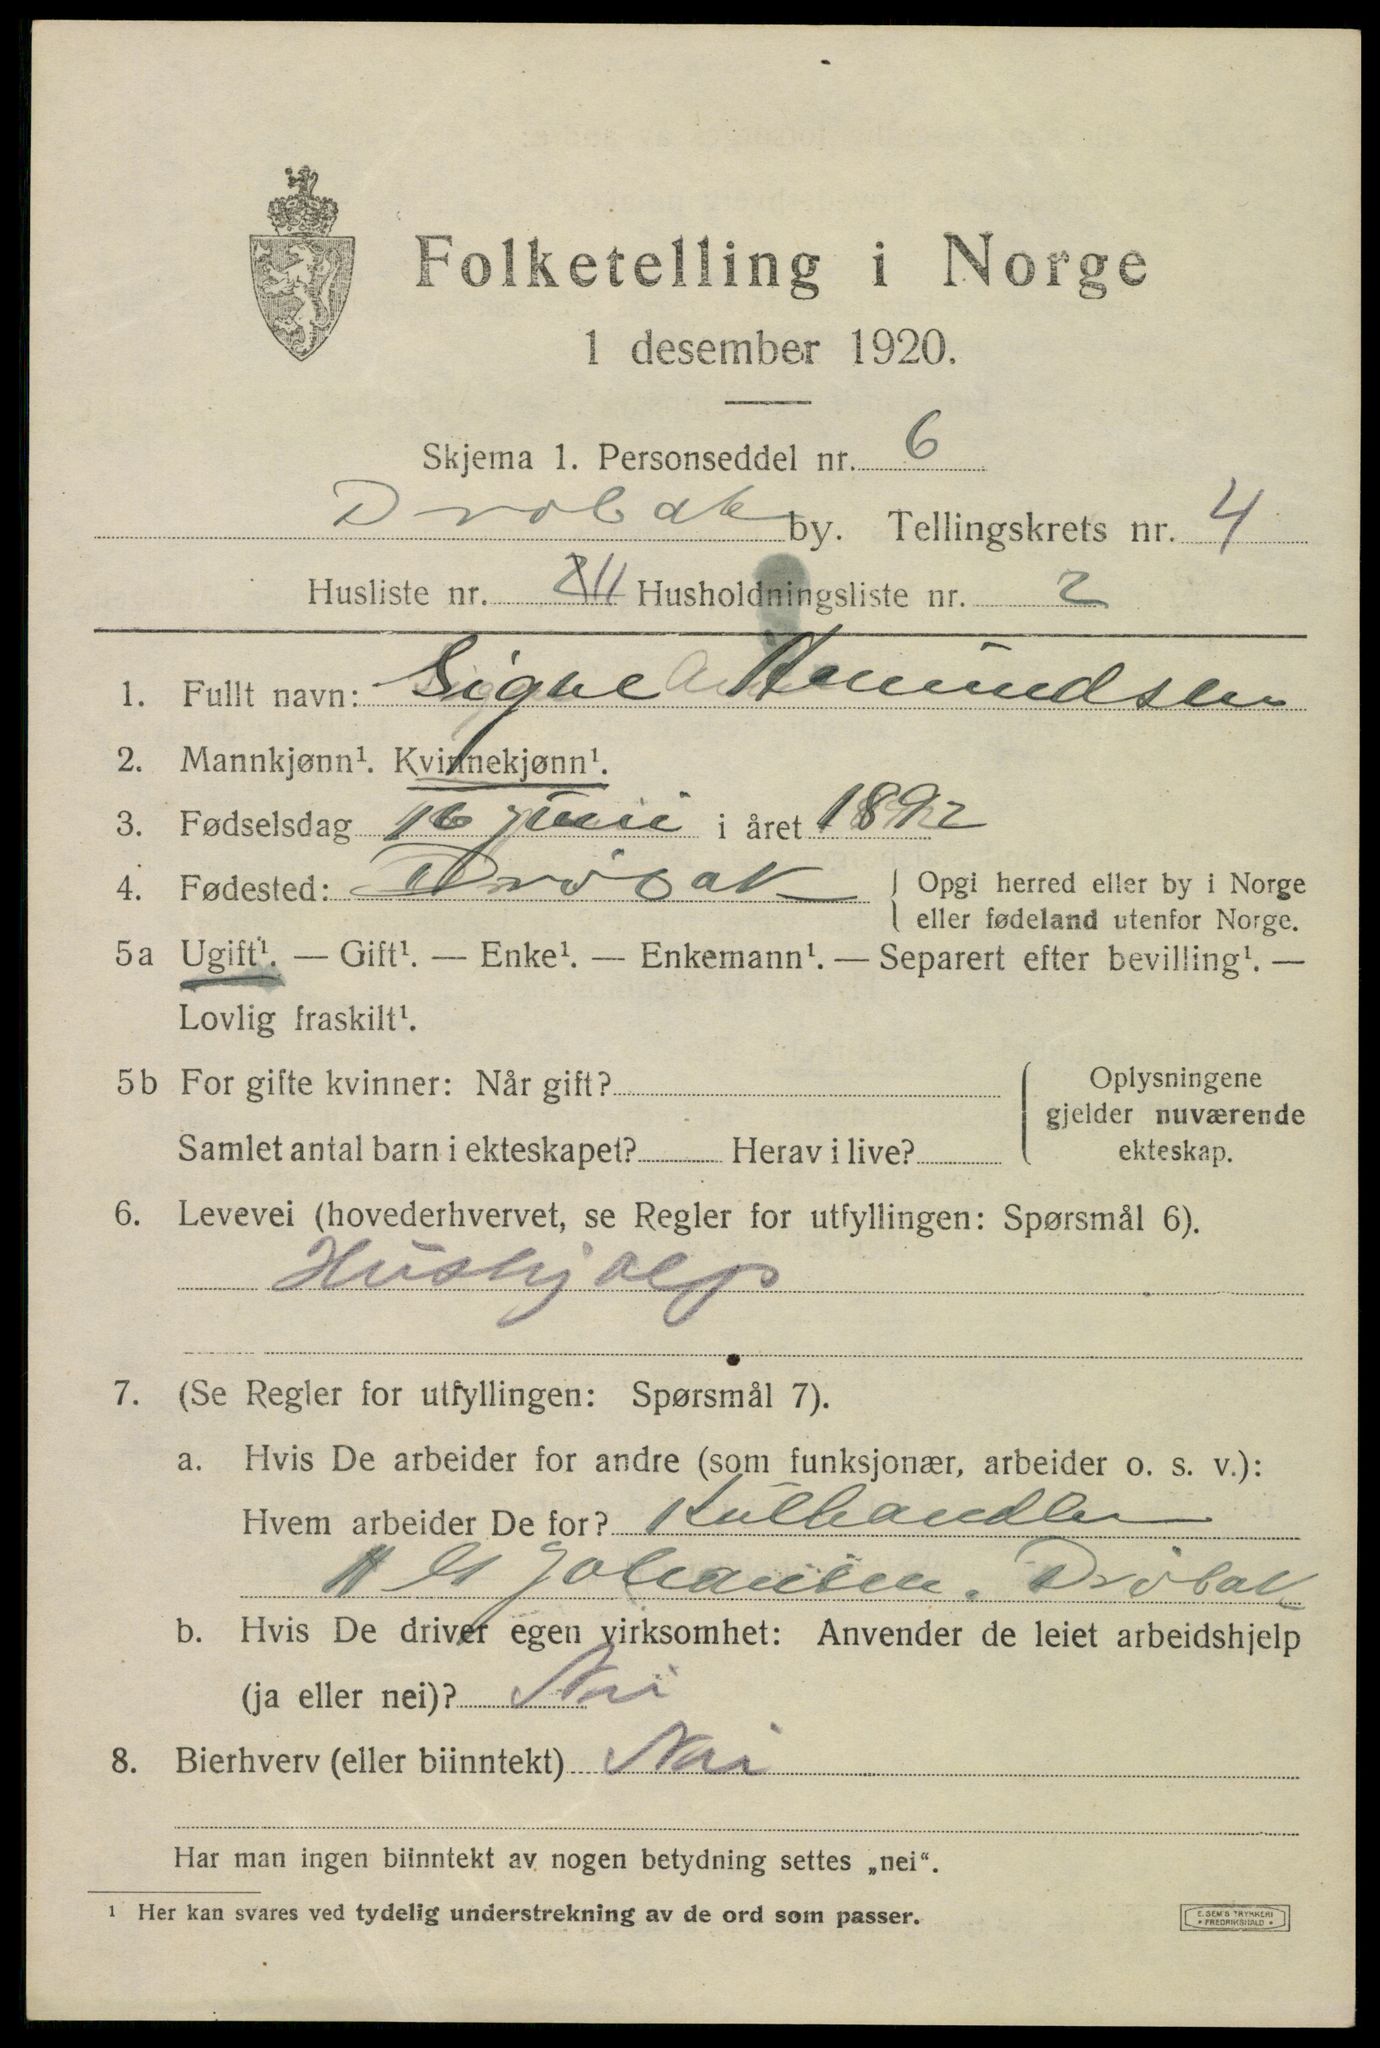 Folketelling i Norge
1 desember 1920.
Skjema 1. Personseddel nr. 6
Drøbak by. Tellingskrets nr. 4
Husliste nr. 11 Husholdningsliste nr. 2
1. Fullt navn: Signe Amundsen
2. Mannkjønn¹. Kvinnekjønn¹.
3. Fødselsdag 16 juni i året 1892
4. Fødested: Drøbak { Opgi herred eller by i Norge
eller fødeland utenfor Norge.
5a Ugift¹. — Gift¹. — Enke¹. — Enkemann¹. — Separert efter bevilling¹. —
Lovlig fraskilt¹.
5b For gifte kvinner: Når gift?
Samlet antal barn i ekteskapet? Herav i live?
Oplysningene
gjelder nuværende
ekteskap.
6. Levevei (hovederhvervet, se Regler for utfyllingen: Spørsmål 6).
Hushjælp
7. (Se Regler for utfyllingen: Spørsmål 7).
a. Hvis De arbeider for andre (som funksjonær, arbeider o. s. v.):
Hvem arbeider De for? Kulhandler
H G Johansen. Drøbak
b. Hvis De driver egen virksomhet: Anvender de leiet arbeidshjelp
(ja eller nei)? Nei
8. Bierhverv (eller biinntekt) Nei
Har man ingen biinntekt av nogen betydning settes „nei“.
¹ Her kan svares ved tydelig understrekning av de ord som passer.
E. SEM'S TRYKKERI
• FREDRIKSHALD •